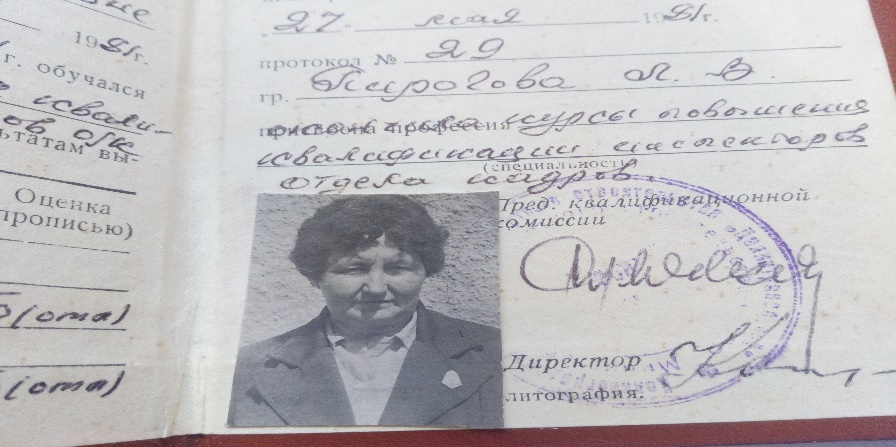 1981г.
г. обучался
квали-
ов о/к
ьтатам вы-
Оценка
прописью)
5 (отл)
5 (отл)
27 мая 1981г.
протокол № 29
гр. Пирогова Л. В.
присвоена профессия
окончила курсы повышения
квалификации инспекторов
(специальность)
отдела кадров.
Пред. квалификационной
комиссии
Директор
литография.